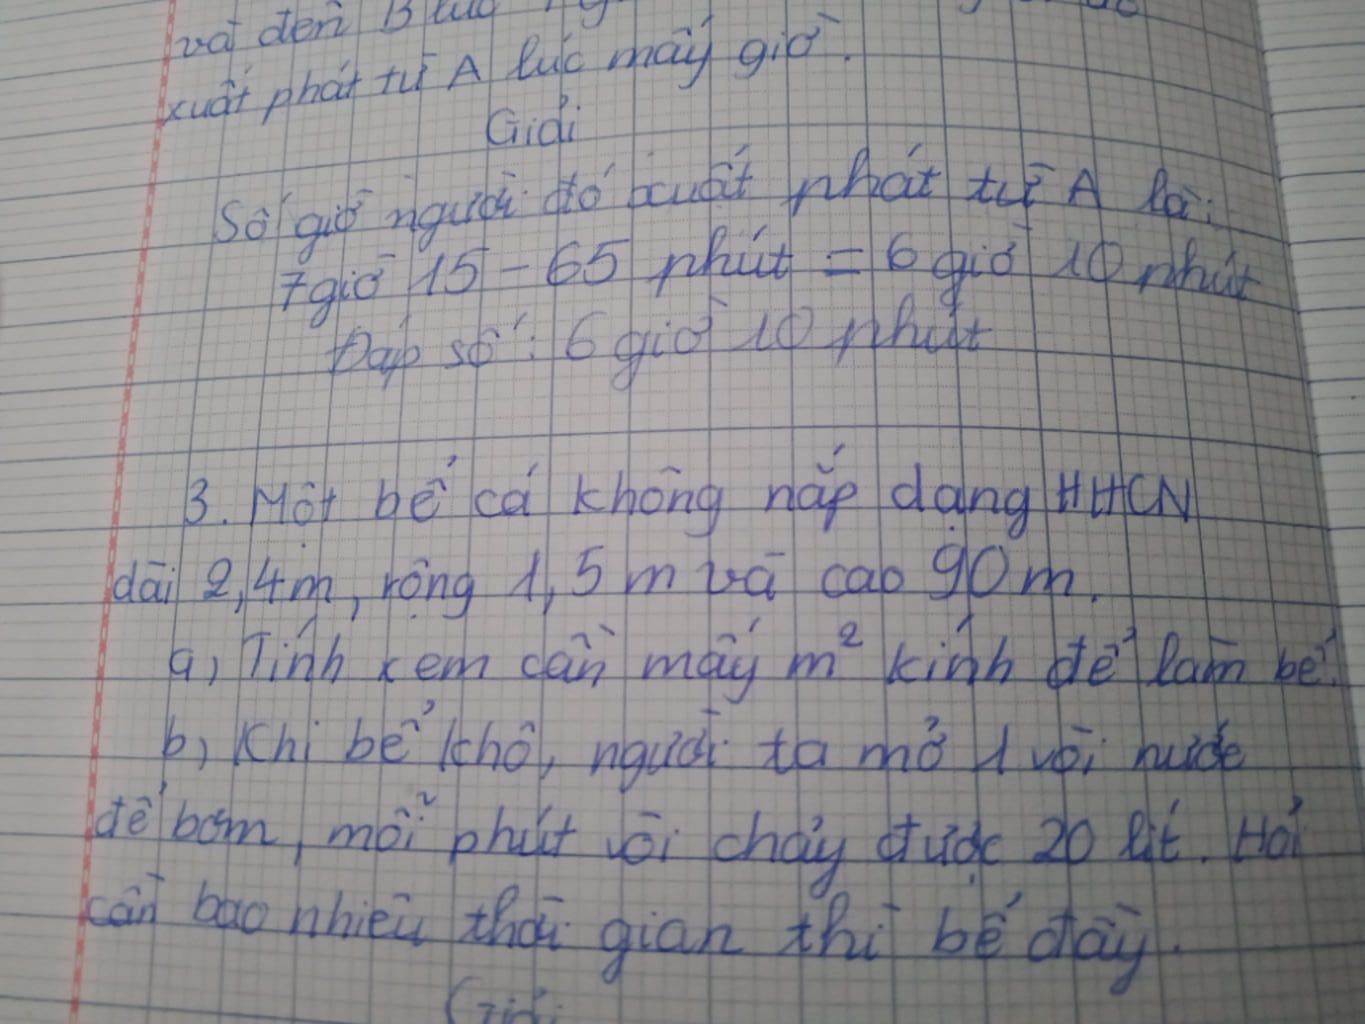 và đến B lúc
xuất phát từ A lúc mấy giờ.
Giải
Số giờ người đó xuất phát từ A là:
7giờ 15 - 65 phút = 6 giờ 10 phút
Đáp số: 6 giờ 10 phút
3. Một bể cá không nắp dạng HHCN
dài 2,4m, rộng 1,5 m và cao 90 m.
a, Tính xem cần mấy m² kính để làm bể.
b, Khi bể khô, người ta mở 1 vòi nước
để bơm, mỗi phút vòi chảy được 20 lít. Hỏi
cần bao nhiêu thời gian thì bể đầy.
Giải